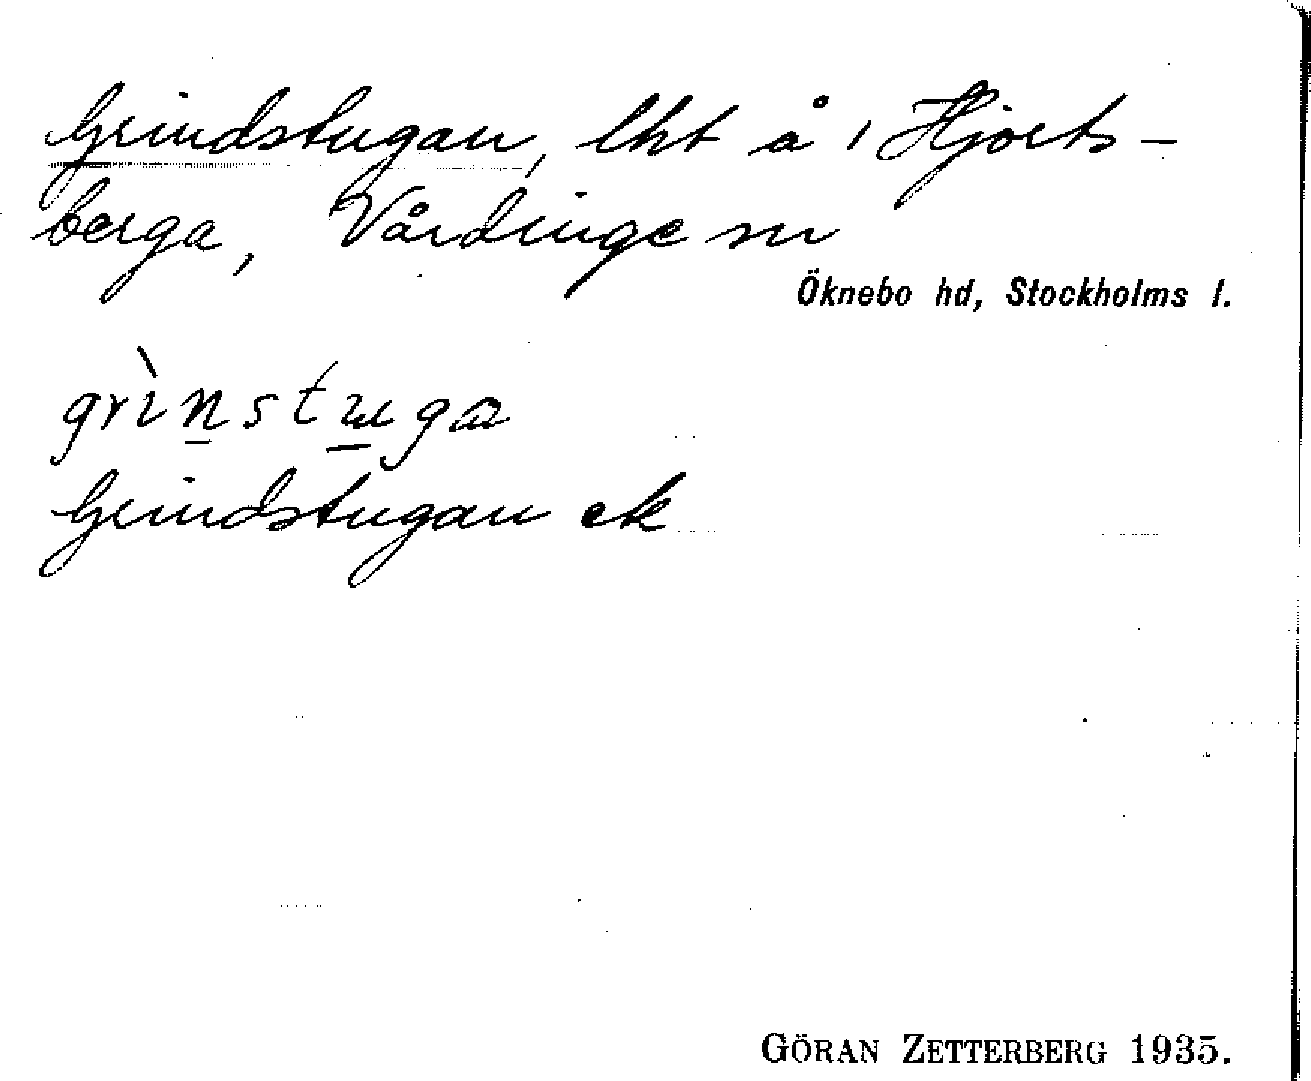 Grindstugan, lht å 1 Hjorts-
berga, Vårdinge sn
Öknebo hd, Stockholms l.
grìn̠stɯ̠ga
Grindstugan ek
GÖRAN ZETTERBERG 1935.